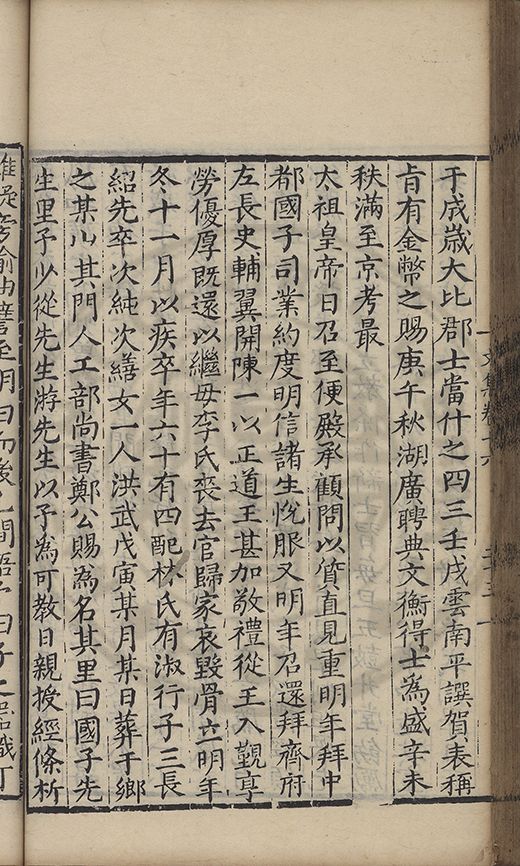 于成歲大比郡士當什之四三壬戌雲南平譔賀表稱
㫖有金幣之賜庚午秋湖廣聘典文衡得士爲盛辛未
秩滿至京考最
太祖皇帝日召至便殿承顧問以質直見重明年拜中
都國子司業約度明信諸生悅服又明年召還拜齊府
左長史輔翼開陳一以正道王甚加敬禮從王入覲享
勞優厚既還以繼母李氏喪去官歸家哀毀骨立明年
冬十一月以疾卒年六十有四配林氏有淑行子三長
紹先卒次純次繕女一人洪武戊寅某月某日葬于鄉
之某山其門人工部尚書鄭公賜為名其里曰國子先
生里予少從先生游先生以予為可教日親授經條析